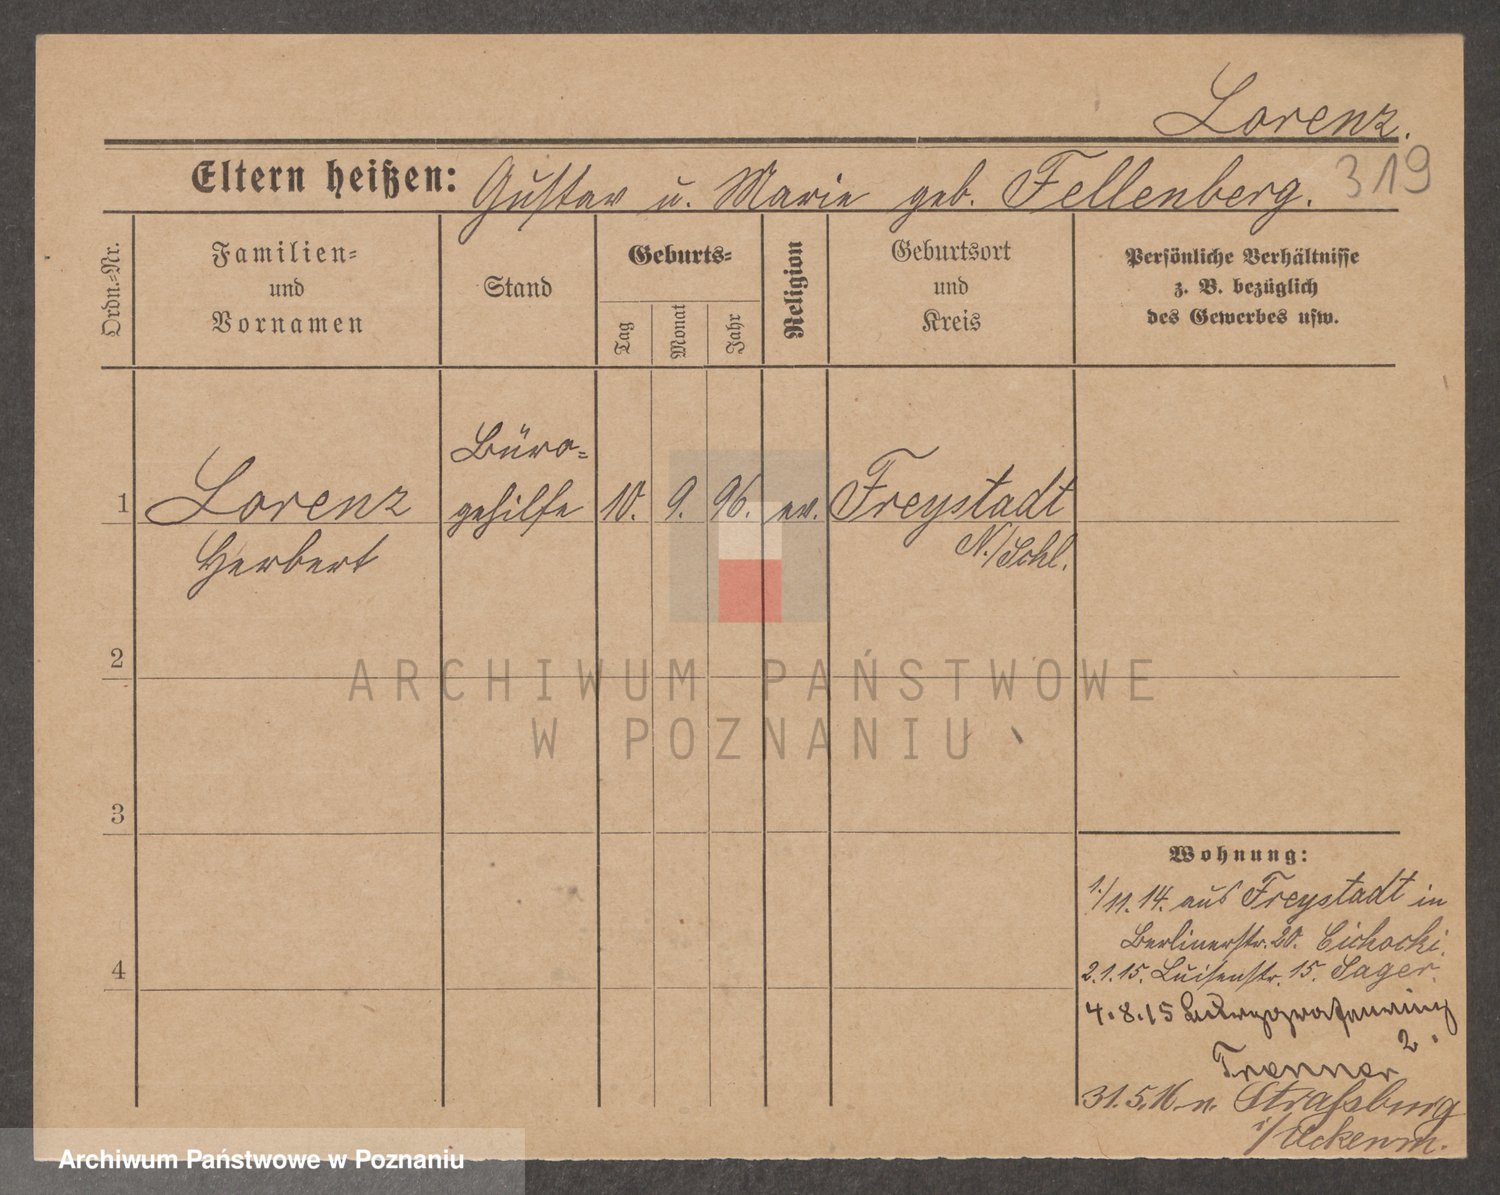 Lorenz.
319
Eltern heißen: Gustav u. Marie geb. Fellenberg.
Ordn.=Nr.
Familien=
und
Vornamen
Stand
Geburts=
Tag
Monat
Jahr
Religion
Geburtsort
und
Kreis
Persönliche Verhältnisse
z. B. bezüglich
des Gewerbes usw.
1
Lorenz
Herbert
Büro=
gehilfe
10. 9. 96. ev.
Freystadt
N./Schl.
2
3
4
Wohnung:
1./11. 14. aus Freystadt in
Berlinerstr. 20. Cichocki.
2.1.15. Luisenstr. 15. Sager.
4.8.15 Burggrafenring
2.
31.5.16 n. Straßburg
i/Uckerm.
ARCHIWUM PAŃSTWOWE
W POZNANIU
Archiwum Państwowe w Poznaniu